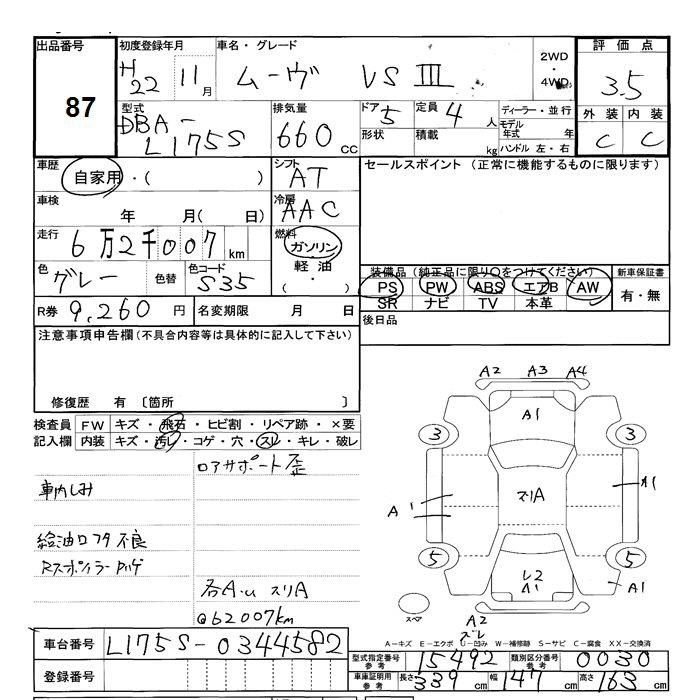 出品番号
87
初度登録年月
H22 11月
車名・グレード
ムーヴ VS III
2WD・4WD
評価点
3.5
外装 内装
C C
型式
DBA-
L175S
排気量
660 CC
ドア 5
定員 4人
形状
積載 kg
ディーラー・並行
モデル年式 年
ハンドル 左・右
車歴
自家用・( )
シフト
AT
セールスポイント (正常に機能するものに限ります)
車検
年 月( 日)
冷房
AAC
走行
6万2千007km
燃料
ガソリン
軽油
( ・ )
色
グレー
色替
色コード
S35
装備品 (純正品に限り○をつけてください)
PS PW ABS エアB AW
SR ナビ TV 本革
新車保証書
有・無
R券 9,260 円
名変期限 月 日
後日品
注意事項申告欄(不具合内容等は具体的に記入して下さい)
修復歴 有 〔箇所 〕
検査員 FW キズ・飛石・ヒビ割・リペア跡・×要
記入欄 内装 キズ・汚レ・コゲ・穴・スレ・キレ・破レ
ロアサポート歪
車内しみ
給油口フタ不良
Rスポイラーハゲ
各A・u スリA
@62007km
A2 A3 A4
A1
3 3
スリA
A1 A1
5 5
A1
スペア
A2
ズレ
A-キズ E-エクボ U-凹み W-補修跡 S-サビ C-腐食 XX-交換済
車台番号 L175S-0344582
登録番号
型式指定番号 参考 15492
類別区分番号 参考 0030
車庫証明用 参考 長さ 339 cm 幅 147 cm 高さ 163 cm